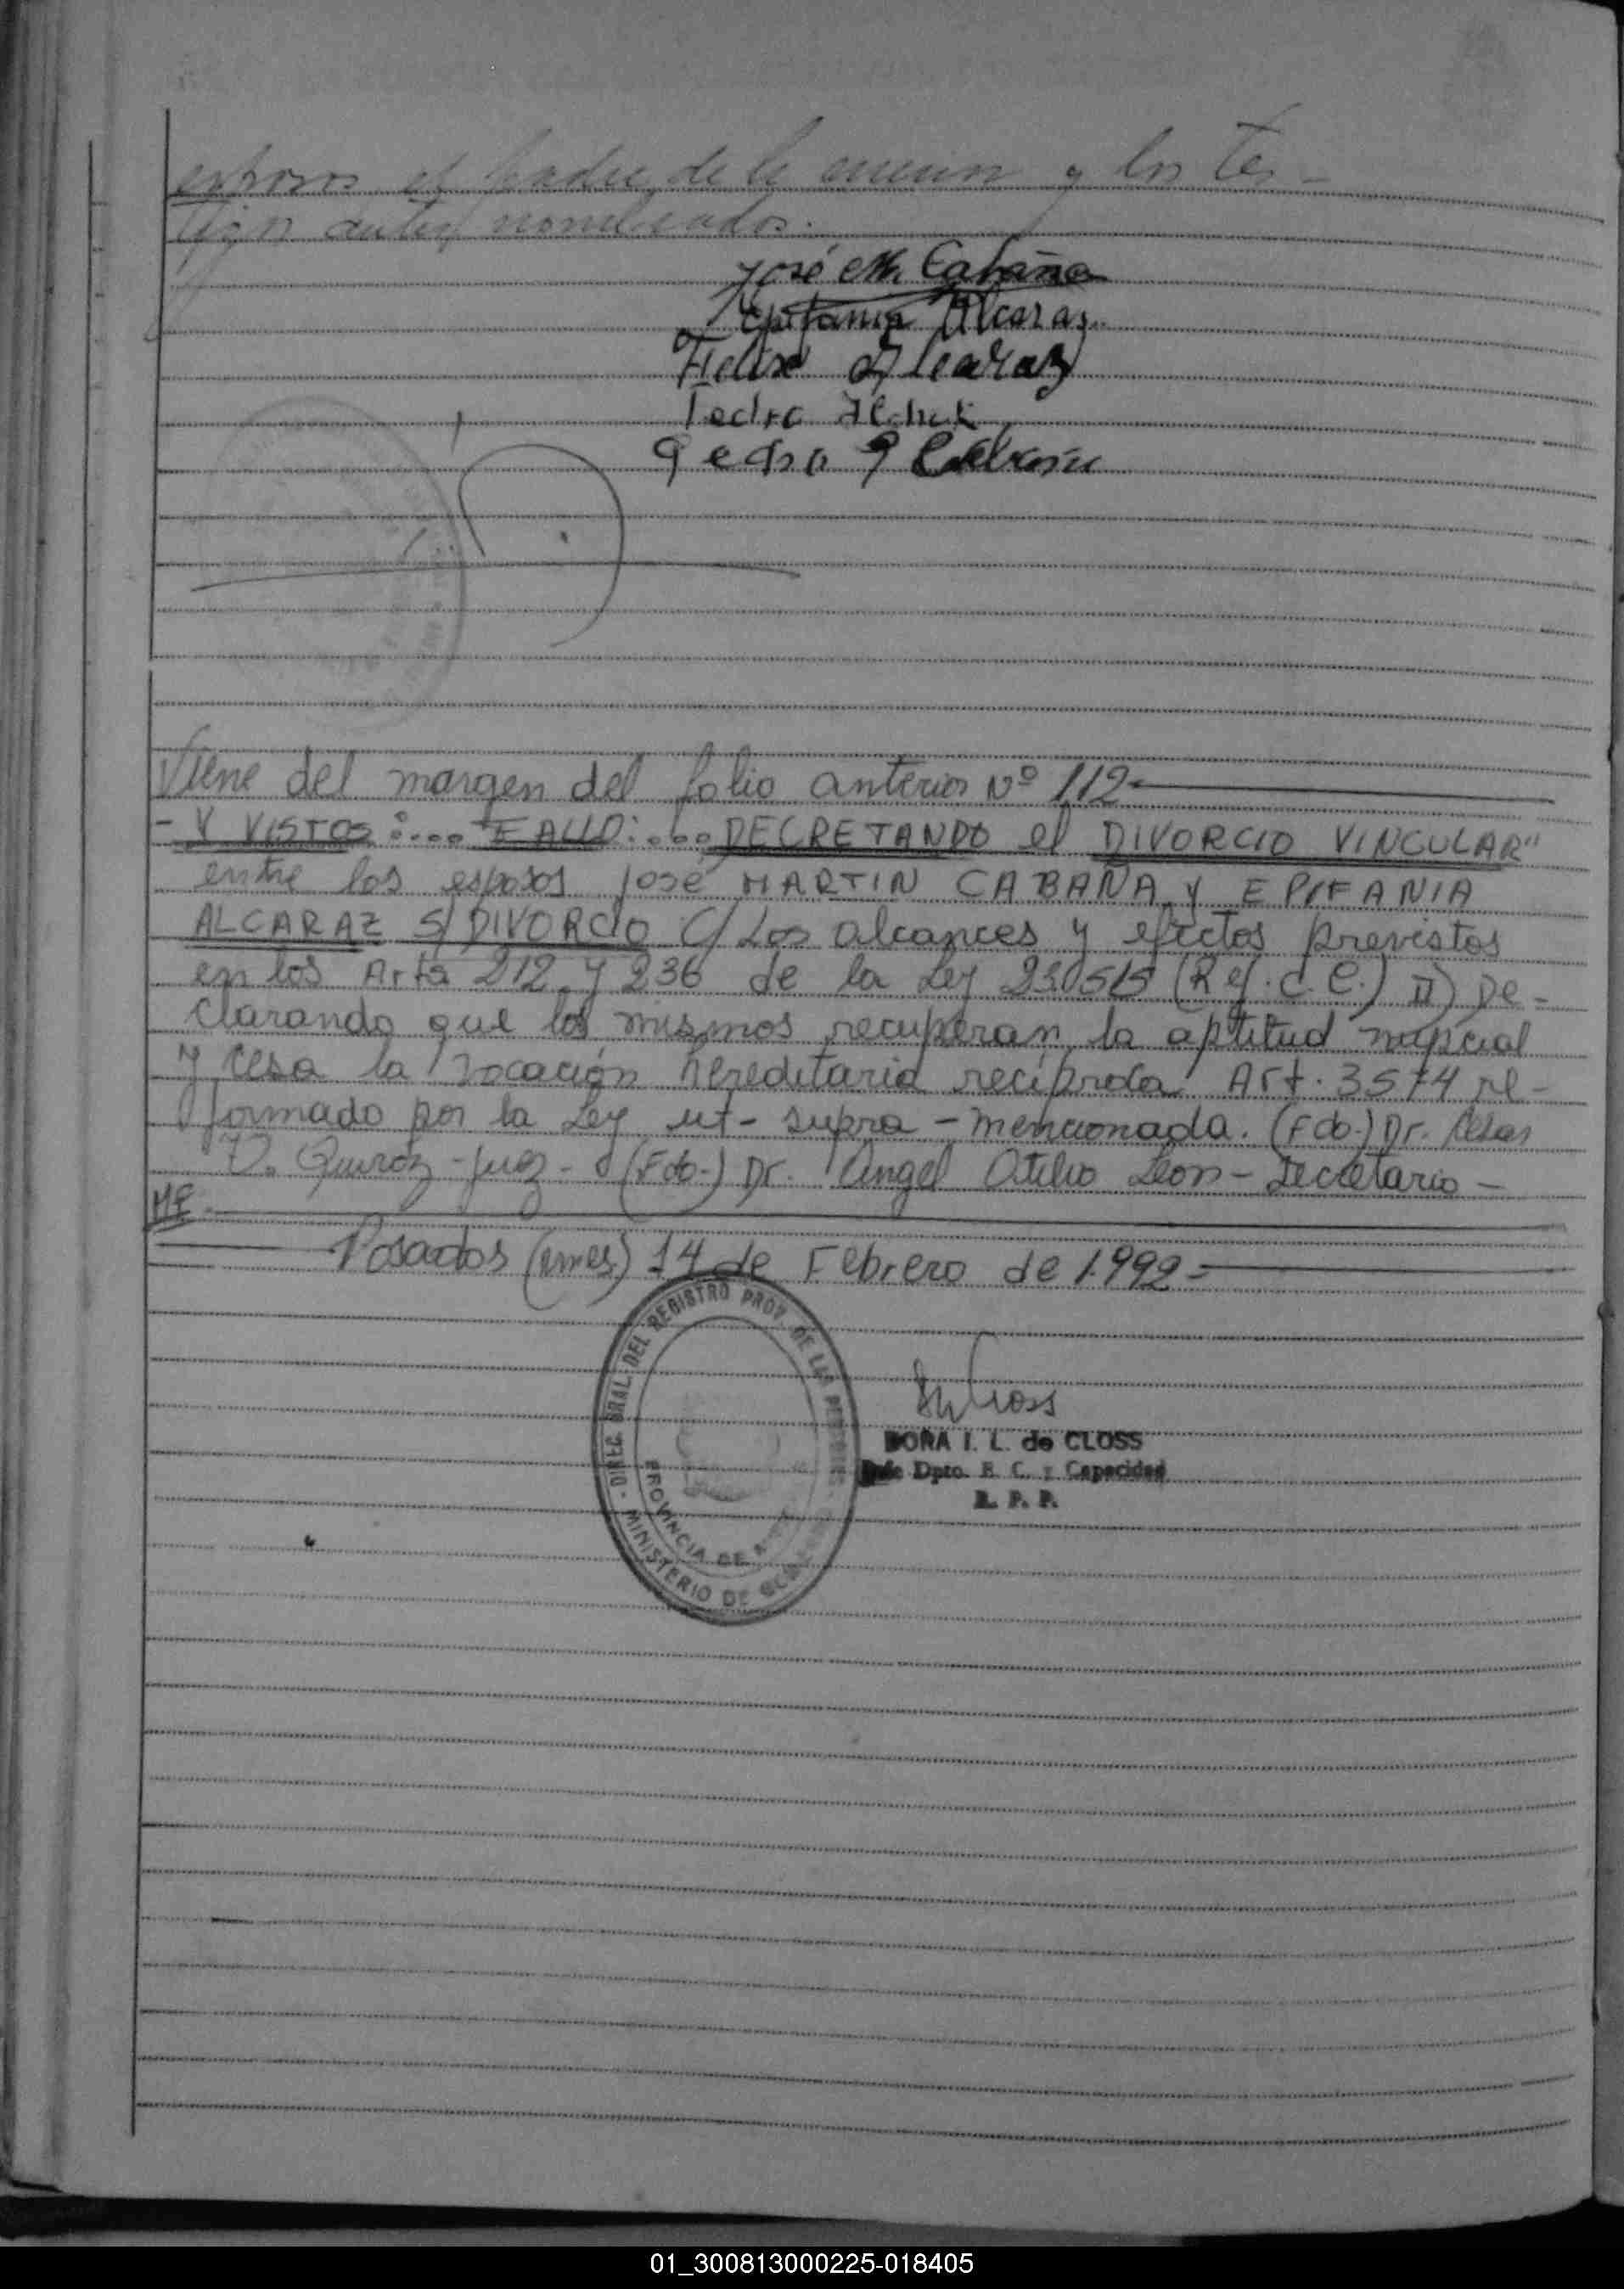 esposos el padre de la menor y los tes-
tigos antes nombrados.
José M. Cabaña
Epifania Alcaraz
Felix Alcaraz
Pedro
Pedro P Cabaña
Viene del margen del folio anterior Nº 112-
- Y VISTOS:.... FALLO:... DECRETANDO el DIVORCIO VINCULAR"
entre los esposos José MARTIN CABAÑA y EPIFANIA
ALCARAZ S/ DIVORCIO C/ Los alcances y efectos previstos
en los Arts 212 y 236 de la Ley 23.0515 (Ref. C.C.) II) De-
clarando que los mismos recuperan la aptitud nupcial
y cesa la vocación hereditaria recíproca Art. 3574 re-
formado por la Ley ut- supra - mencionada. (Fdo.) Dr. Cesar
D. Quiroz - Juez - (Fdo-) Dr. Angel Otilio Leon - Secretario -
MF.
Posadas (Mnes.) 14 de Febrero de 1.992-
- DIREC. GRAL. DEL REGISTRO PROV. DE LAS PERSONAS -
PROVINCIA DE
MINISTERIO DE
DORA I. L. de CLOSS
Jefe Dpto. E. C. y Capacidad
R. P. P.
01_300813000225-018405